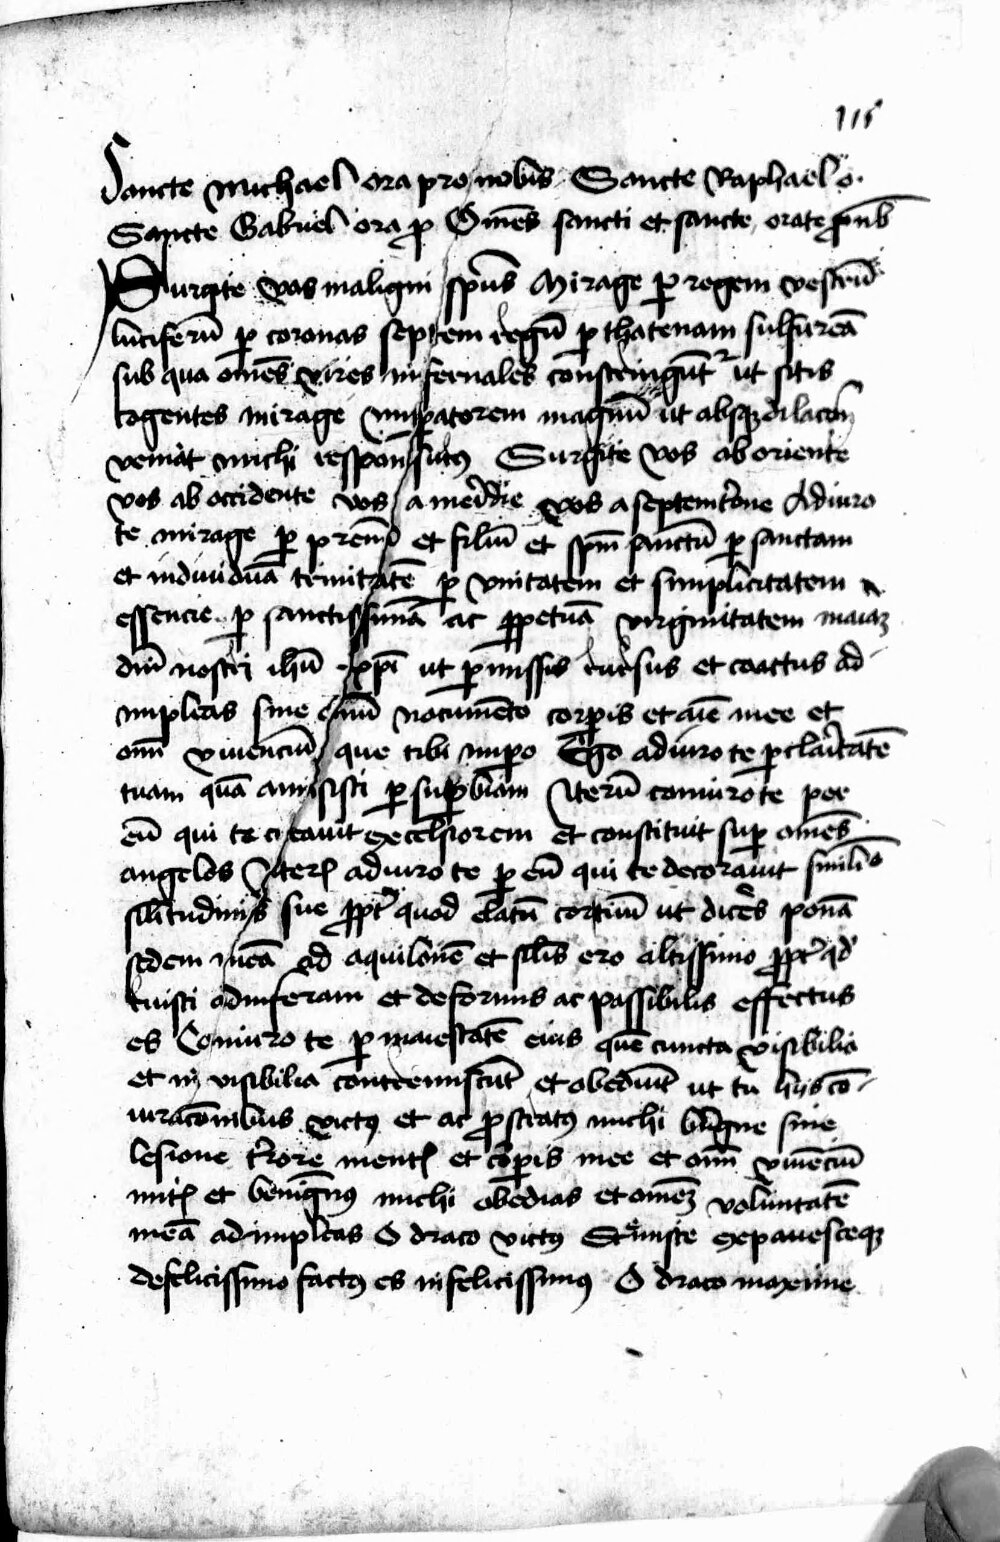 115
Sancte Michael ora pro nobis Sancte Raphael o.
Sancte Gabriel ora p Om̄es sancti et sancte orate p nob
Surgite vos maligni sp̄us Mirage p regem vestrū
luciferū p coronas septem regū p thatenam sulfureā
sub qua om̄es vires infernales constringūt ut sitis
cogentes mirage imp̱atorem magnū ut absq̨ dilac̄on
veniat michi responsurꝰ Surgite vos ab oriente
vos ab occidente vos a meridie vos a septemt̓one Adiuro
te mirage p pr̄em et filiū et sp̄m sanctū p sanctam
et indiuiduā trinitatē p vnitatem et simplicitatem
essencie p sanctissimā ac ꝑpetuā virginitatem
dn̄i nostri ih̄u xp̄i ut p̱missis cursus et coactus ad
impleas sine om̄i nocumēto corp̱is et aīe mee et
om̄i viuenciū que tibi imp̱o Ego adiuro te p claritatē
tuam quā amisisti p sup̱biam Iterū coniuro te per
eū qui te creauit excelsiorem et constituit sup om̄es
angelos Iteꝝ adiuro te p eū qui te decorauit
silitudinis sue ꝓpt̓ quod elatū ut dic̓es ponā
sedem meā ad aquilonē et sil̓is ero altissimo ꝓpt̓ qd̓
ruisti ad inferam et deformis ac passibilis effectus
es Coniuro te p maiestatē eius quē cuncta visibilia
et in visibilia contremiscūt et obediūt ut tu hijs cō
iurac̄onibus victꝰ et ac ꝓstratꝰ michi sine
lesione t̓rore mentꝭ et corp̱is mee et om̄i viuenciū
mitꝭ et benignꝰ michi obedias et om̄em voluntatē
meā adimpleas O draco victꝰ expauesceq̨
de felicissimo factꝰ es infelicissimꝰ O draco maxime